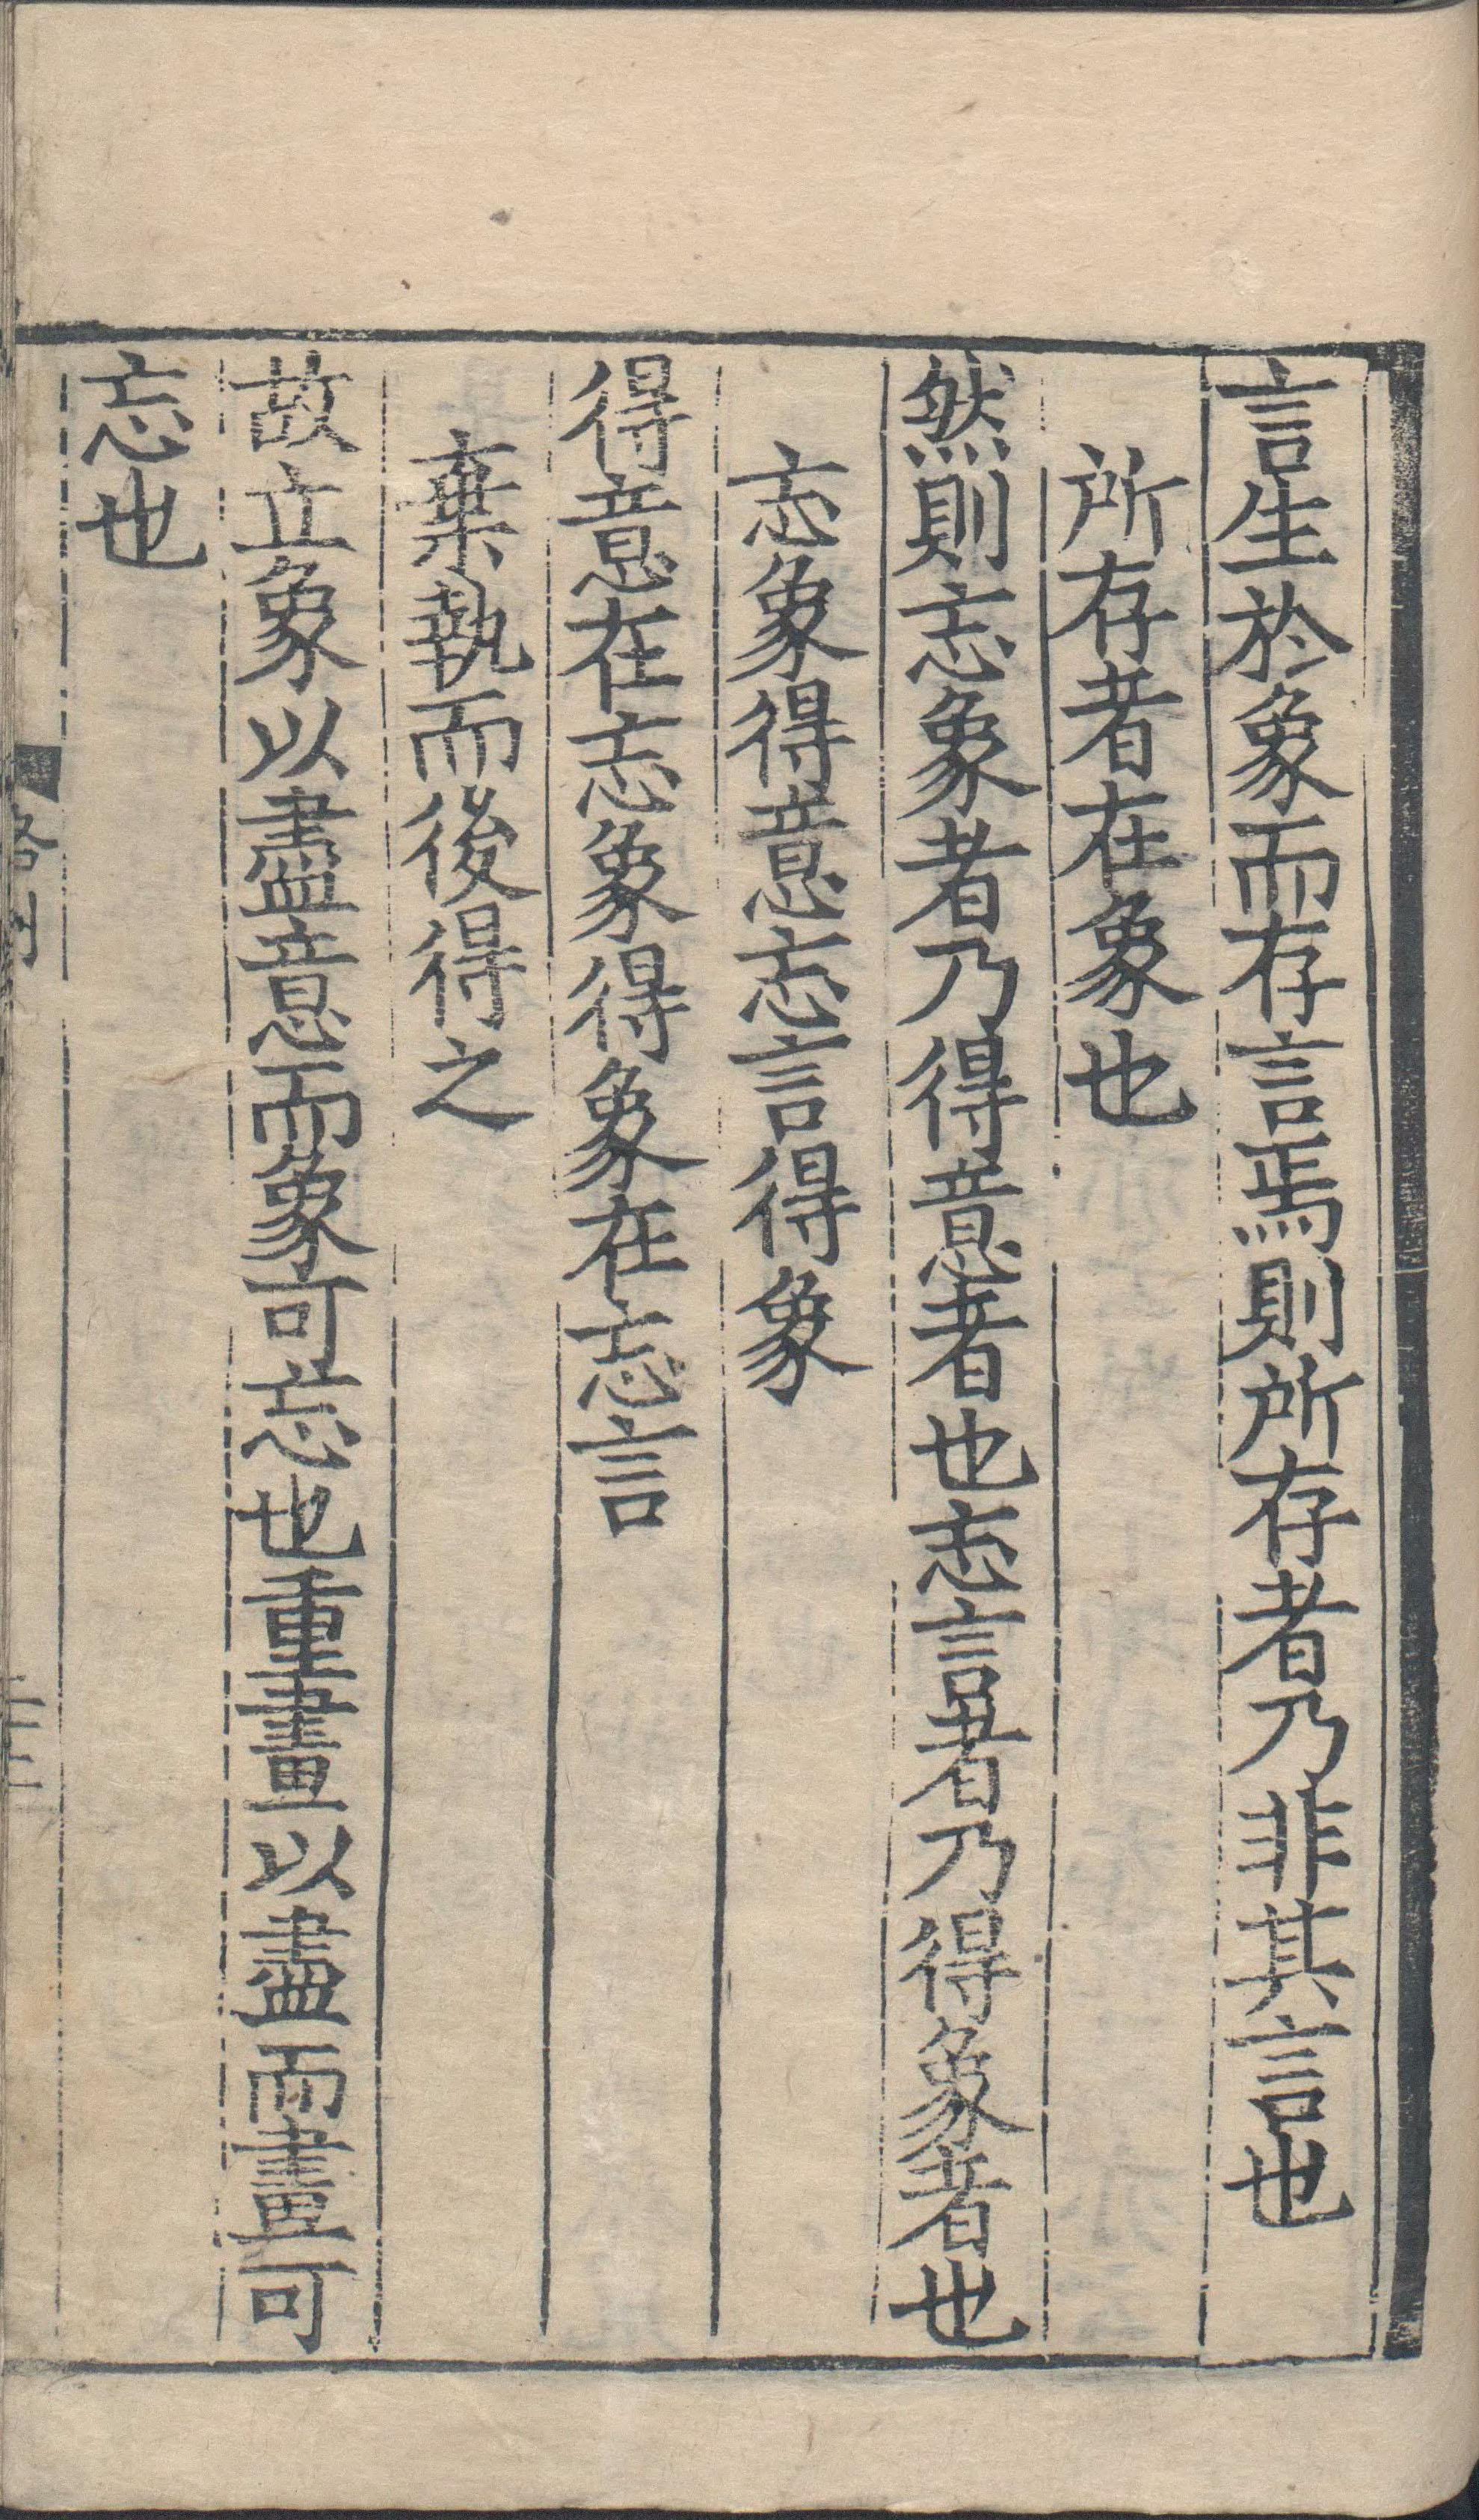 言生於象而存言焉則所存者乃非其言也
所存者在象也
然則忘象者乃得意者也忘言者乃得象者也
忘象得意忘言得象
得意在忘象得象在忘言
棄執而後得之
故立象以盡意而象可忘也重畫以盡而畫可
忘也